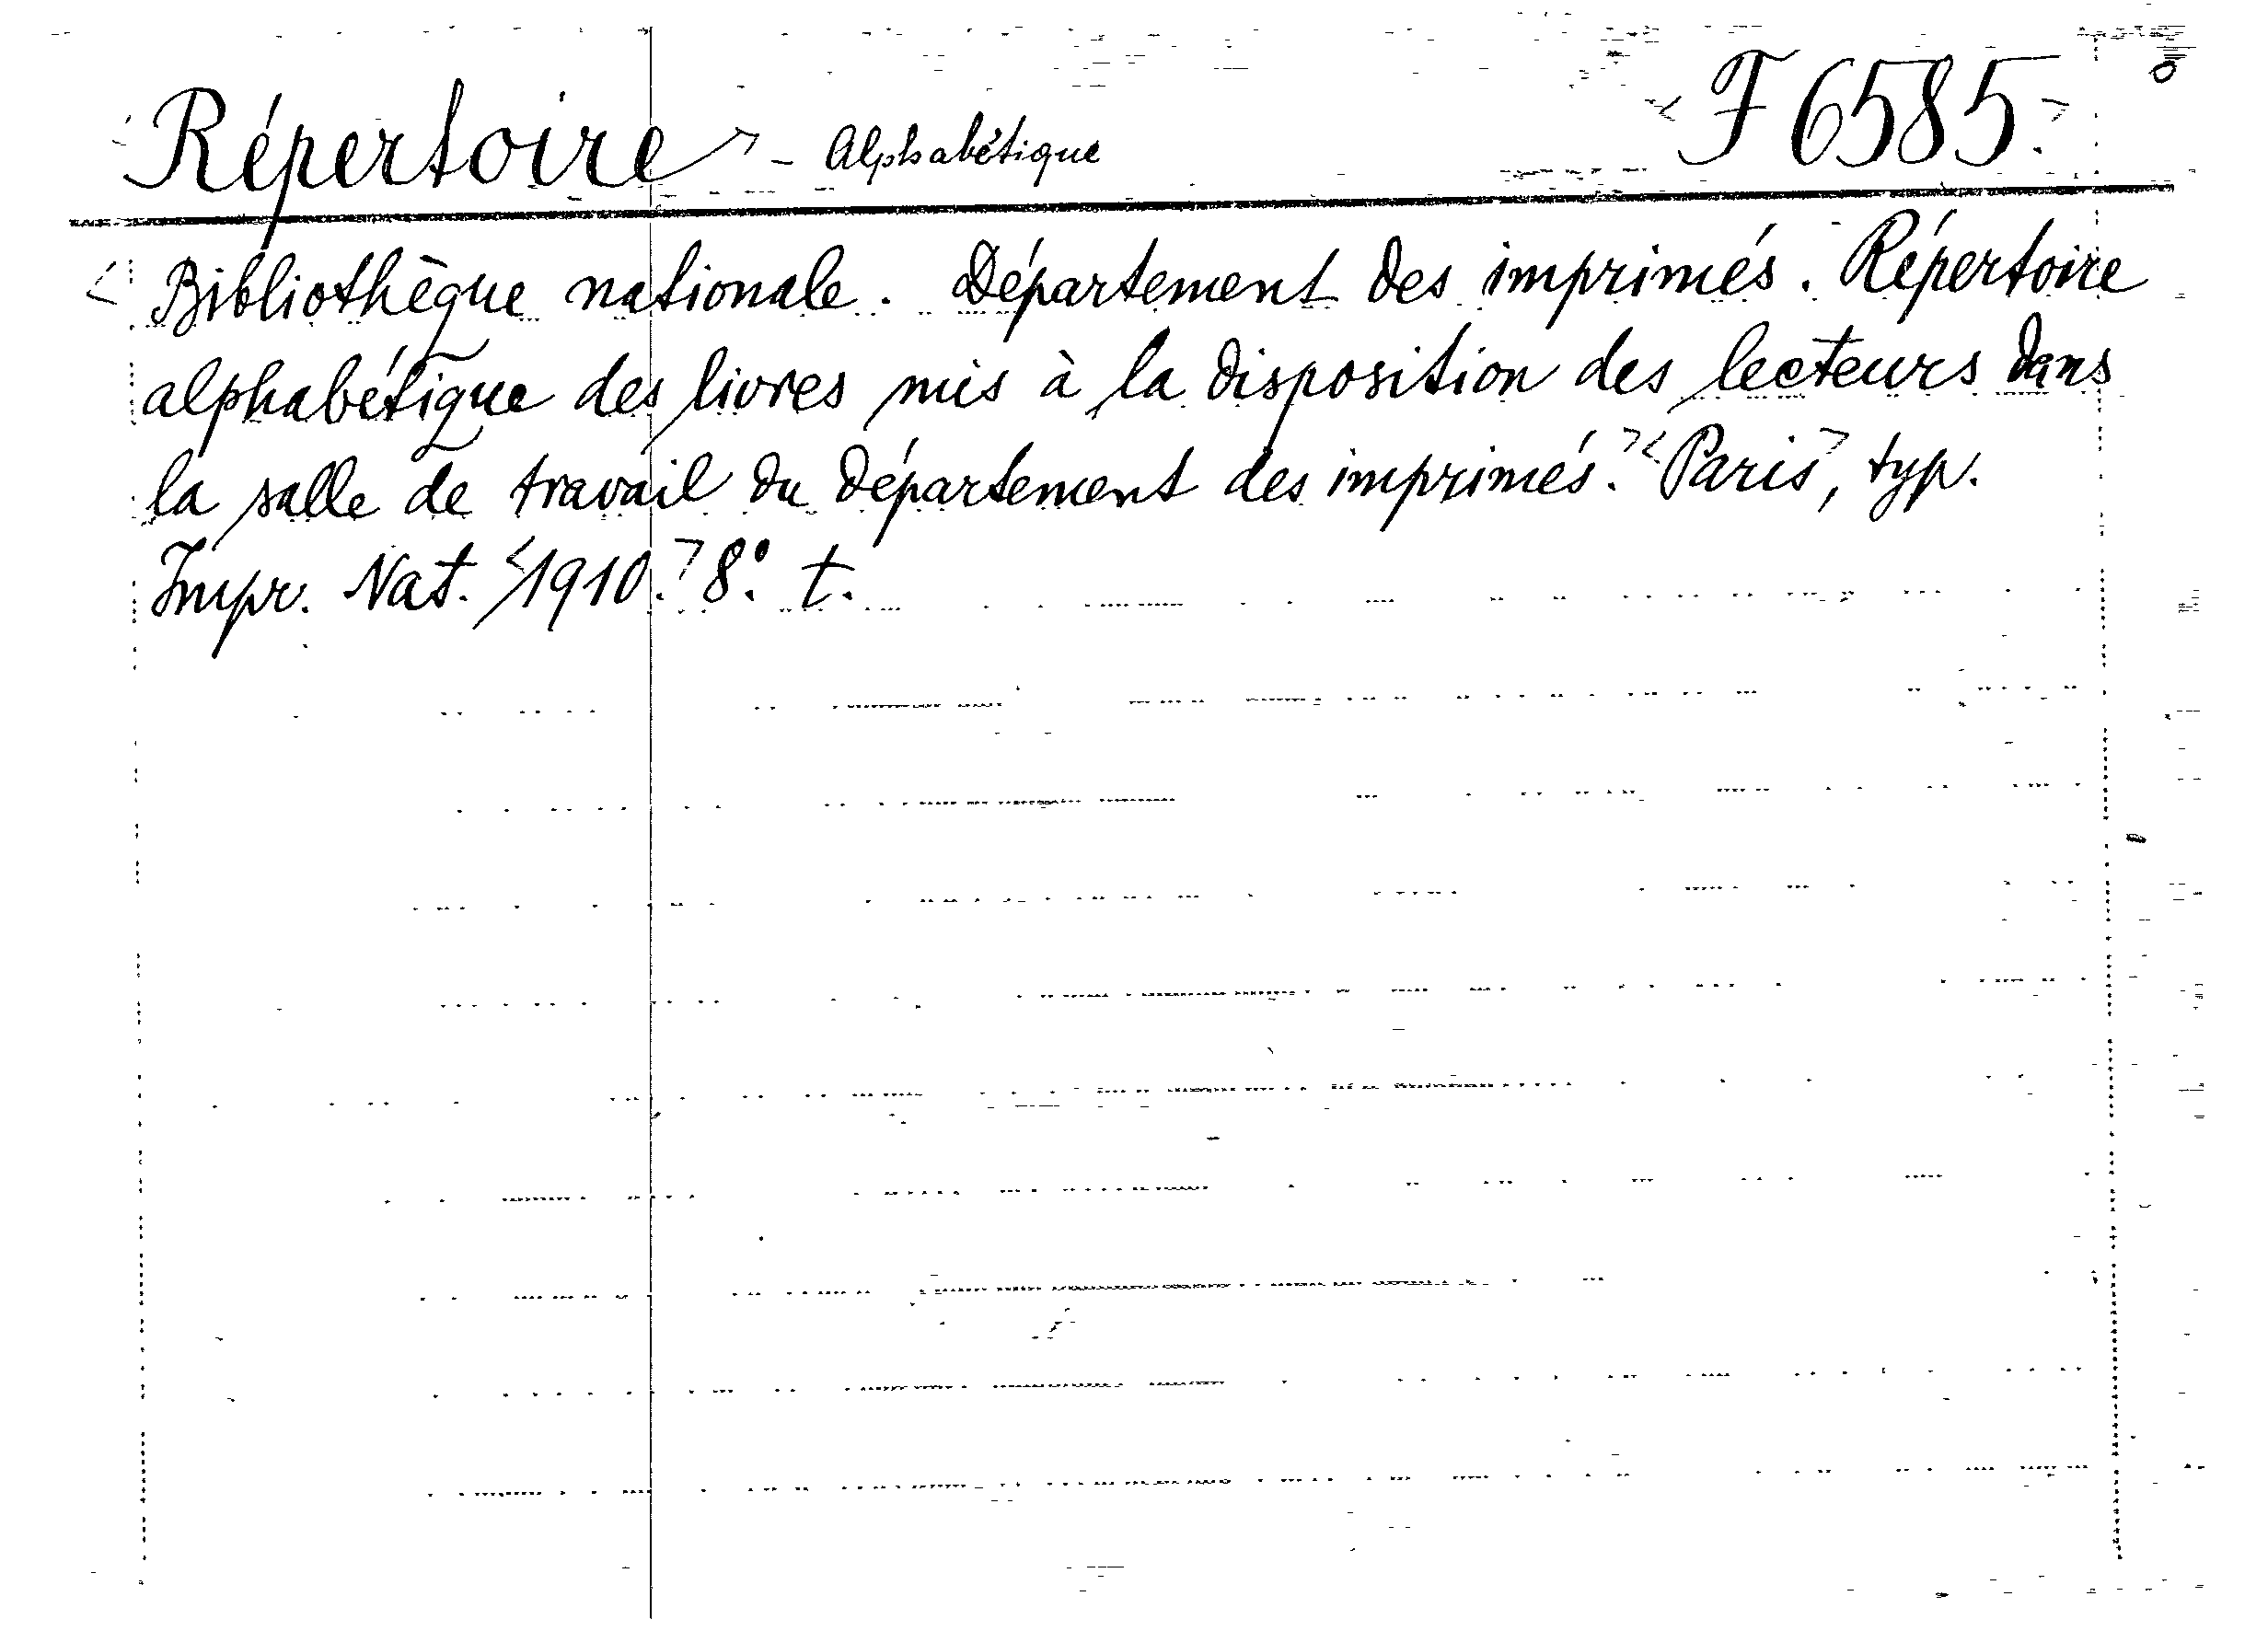 <Répertoire> - Alphabétique <F 6585.>
<Bibliothèque nationale. Département des imprimés. Répertoire
alphabétique des livres mis à la disposition des lecteurs dans
la salle de travail du département des imprimés.> <Paris>, typ.
Impr. Nat. <1910.> 8º. t.